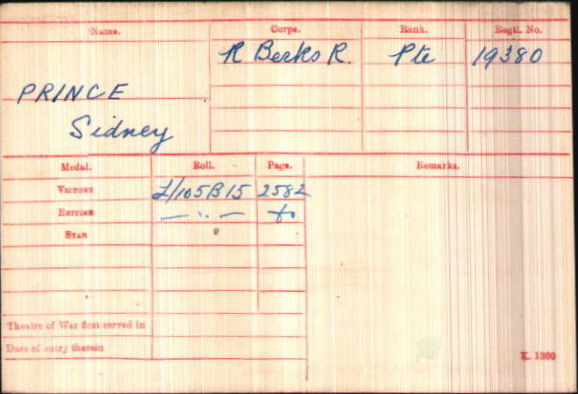 Name. Corps. Rank. Regtl. No.
R Berks R. Pte 19380
PRINCE
Sidney
Medal. Roll. Page. Remarks.
VICTORY J/105B15 2582
BRITISH — ". — do
STAR
Theatre of War first served in
Date of entry therein
K. 1380